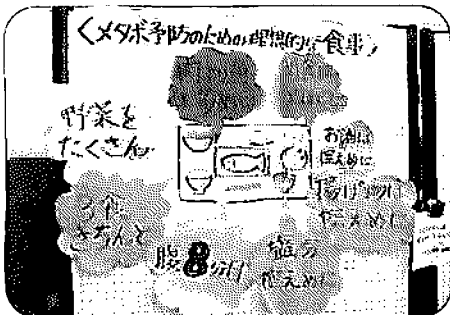 〈メタボ予防のための理想的な食事〉
野菜を
たくさん
お酒は
控えめに
揚げ物は
控えめに
3食
きちんと
腹8分目
塩分
控えめに